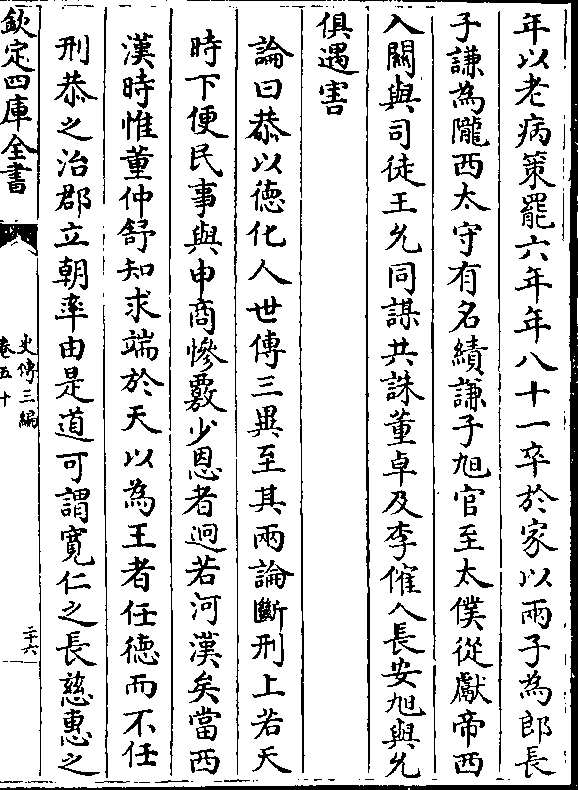 年以老病策罷六年年八十一卒於家以兩子為郎長
子謙為隴西太守有名績謙子旭官至太僕從獻帝西
入關與司徒王允同謀共誅董卓及李傕入長安旭與允
俱遇害
論曰恭以德化人世傳三異至其兩論斷刑上若天
時下便民事與申商慘覈少恩者迥若河漢矣當西
漢時惟董仲舒知求端於天以為王者任德而不任
刑恭之治郡立朝率由是道可謂寬仁之長慈惠之
欽定四庫全書
史傳三編
卷五十
二十六